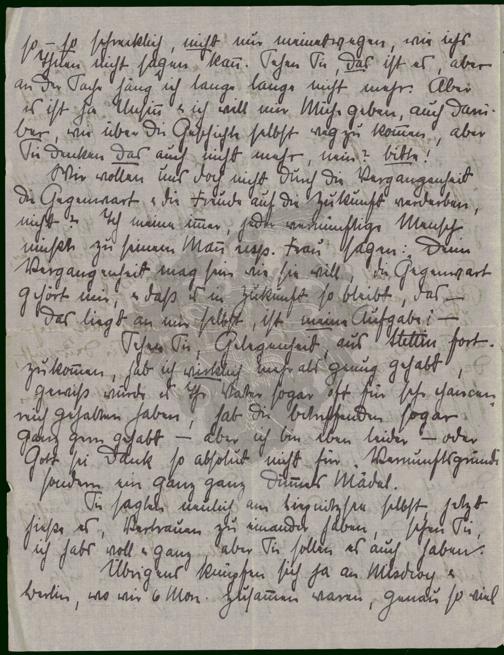 so – so schrecklich, nicht nur meinetwegen, wie ichs
Ihnen nicht sagen kann. Sehen Sie, das ist es, aber
an der Sache häng ich lange lange nicht mehr. Aber
es ist ja Unsinn & ich will mir Mühe geben, auch darü-
ber, wie über die Geschichte selbst weg zu kommen, aber
Sie denken das auch nicht mehr, nein? bitte!
Wir wollen uns doch nicht durch die Vergangenheit
die Gegenwart & die Freude auf die Zukunft verderben,
nicht? Ich meine immer, jeder vernünftige Mensch
müsste zu seinem Mann resp. Frau sagen: Deine
Vergangenheit mag sein wie sie will, die Gegenwart
gehört mir, & dass es in Zukunft so bleibt, das —
das liegt an mir selbst, ist meine Aufgabe! —
Sehen Sie, Gelegenheit, aus Stettin fort-
zukommen, hab ich wirklich mehr als genug gehabt,
gewiss würde es Ihr Vater sogar oft für sehr chancen-
reich gehalten haben, hab die betreffenden sogar
ganz gern gehabt — aber ich bin eben leider — oder
Gott sei Dank so absolut nicht für Vernunftsgründe
sondern ein ganz ganz dummes Mädel.
Sie sagten neulich am selbst, jetzt
hiesse es, Vertrauen zu einander haben, sehen Sie,
ich habs voll & ganz, aber Sie sollen es auch haben.
Übrigens knüpfen sich ja an Misdroy &
Berlin, wo wir 6 Mon. zusammen waren, genau so viel